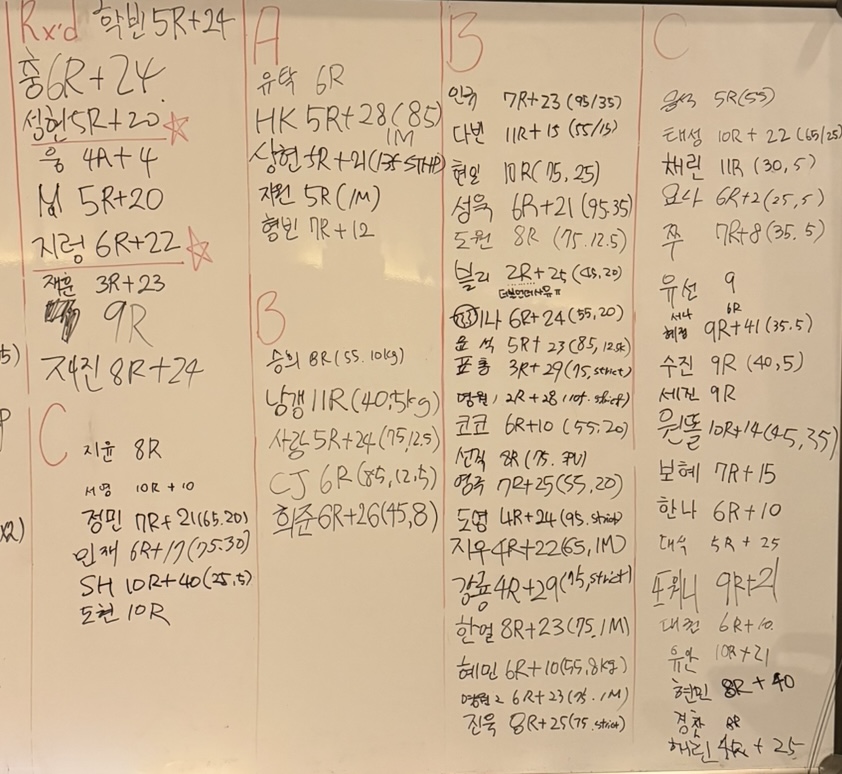 Rx'd 학빈 5R+24
충 6R+24
성헌 5R+20
웅 4R+4
5R+20
지렁 6R+22
재훈 3R+23
9R
재진 8R+24
C
지윤 8R
서영 10R+10
정민 7R+21(65.20)
인재 6R+17(75.30)
SH 10R+40(25,5)
도현 10R
A
유탁 6R
HK 5R+28(85)
1M
상현 5R+21(135 STHP)
지원 5R(1M)
형빈 7R+12
B
승희 8R(55.10kg)
낭갱 11R(40,5kg)
사랑 5R+24(75,12.5)
CJ 6R(85,12.5)
희준 6R+26(45,8)
B
인국 7R+23(95/35)
다빈 11R+15(55/15)
현일 10R(75,25)
성욱 6R+21(95.35)
도원 8R(75.12.5)
블리 2R+25(45,20)
나 6R+24(55,20)
윤석 5R+23(85,
포롱 3R+29(75,strict)
영월1 2R+28
코코 6R+10(55.20)
선직 8R(75.
영주 7R+25(55,20)
도영 4R+24(95.strict)
지우 4R+22(65,1M)
강룡 4R+29(75,strict)
한얼 8R+23(75.1M)
혜민 6R+10(55,8kg)
영월2 6R+23(75.1M)
진욱 8R+25(75.strict)
C
5R(55)
태성 10R+22(65/25)
채린 11R(30,5)
요나 6R+2(25,5)
쭈 7R+8(35.5)
유선 9
서나 6R
혜정 9R+41(35.5)
수진 9R(40,5)
세진 9R
원똘 10R+14(45,35)
보혜 7R+15
한나 6R+10
대식 5R+25
포뤼니 9R+21
대건 6R+10
유안 10R+21
현민 8R+40
경찰 8R
해린 4R+25